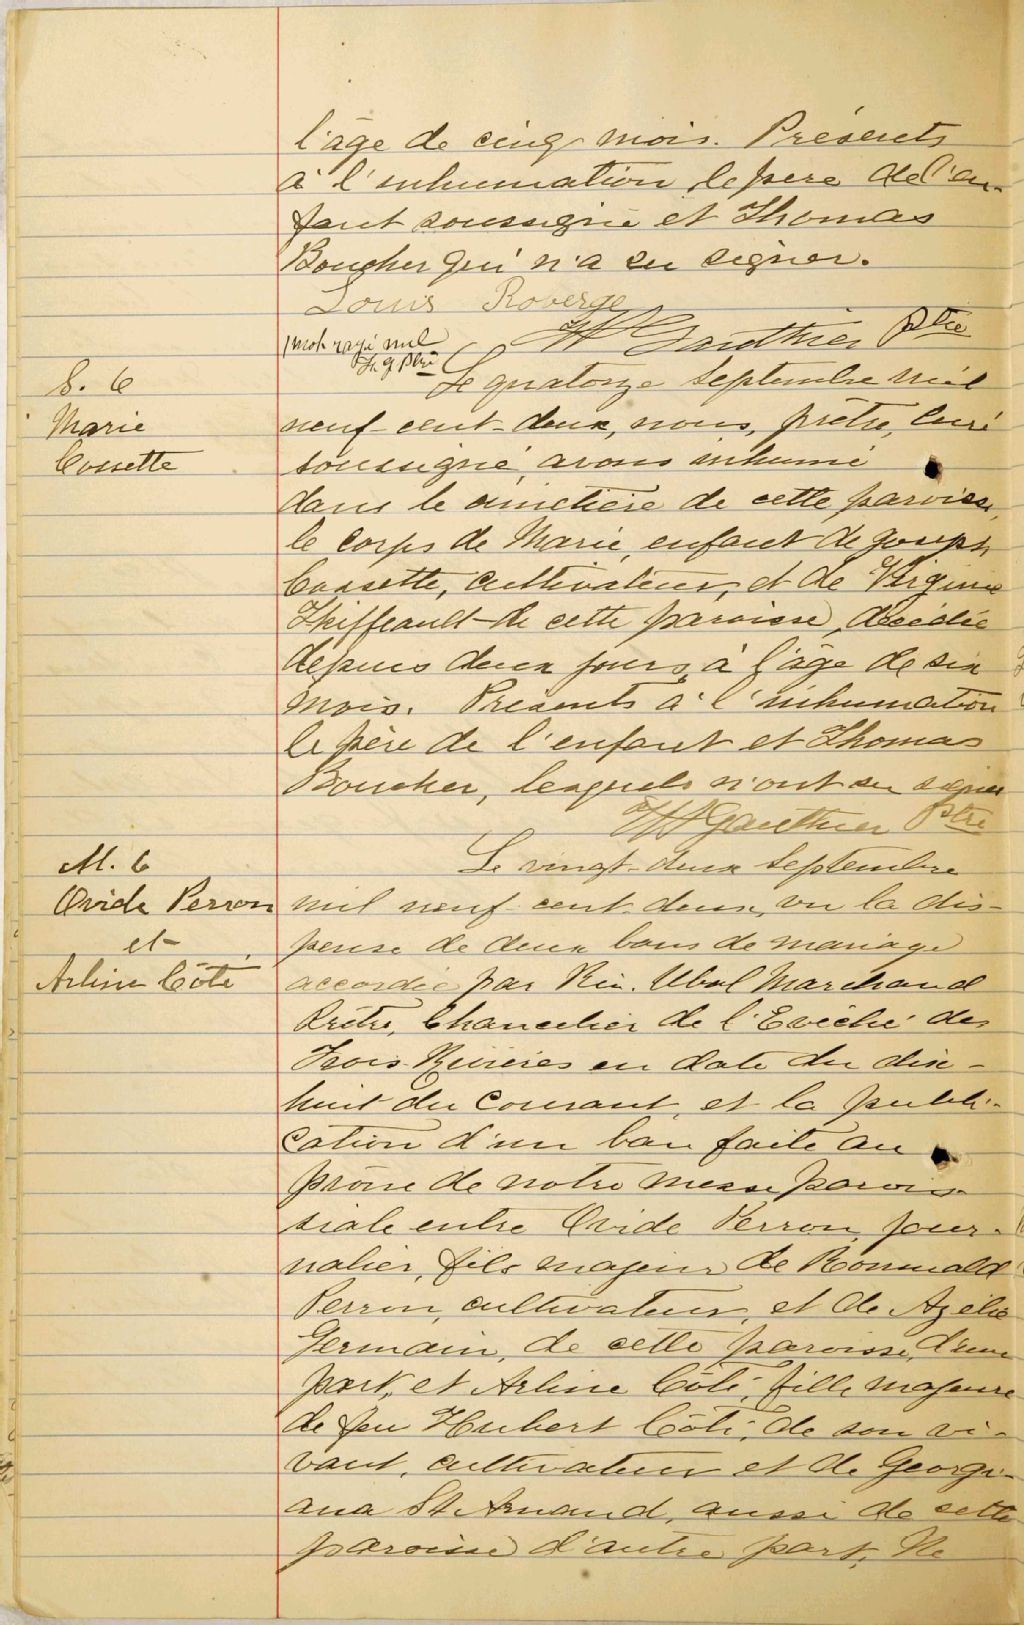 l'âge de cinq mois. Présents
à l'inhumation le père de l'en-
fant soussigné et Thomas
Boucher qui n'a su signer.
Louis Roberge
Gauthier Ptre
1 mot rayé nul
S. 6
Marie
Cossette
Le quatorze Septembre mil
neuf-cent-deux, nous, prêtre, curé
soussigné, avons inhumé
dans le cimetière de cette paroisse,
le corps de Marie, enfant de Joseph
Cossette, cultivateur, et de Virginie
Thiffeault de cette paroisse, décédée
depuis deux jours, à l'âge de six
mois. Présents à l'inhumation
le père de l'enfant et Thomas
Boucher, lesquels n'ont su signer
Gauthier Ptre
M. 6
Ovide Perron
et
Arline Côté
Le vingt-deux Septembre
mil neuf-cent-deux, vu la dis-
pense de deux bans de mariage
accordée par Rév. Ubal Marchand
Prêtre, Chancelier de l'Evêché des
Trois-Rivières en date du dix-
huit du courant, et la publi-
cation d'un ban faite au
prône de notre messe parois-
siale entre Ovide Perron, jour-
nalier, fils majeur de Romuald
Perron, cultivateur, et de Azélie
Germain, de cette paroisse, d'une
part, et Arline Côté, fille majeure
de feu Hubert Côté, de son vi-
vant, cultivateur et de Georgi-
ana St Arnaud, aussi de cette
paroisse d'autre part, Ne